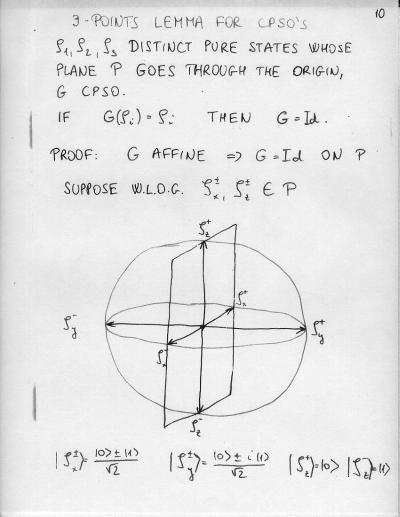 10
3-POINTS LEMMA FOR CPSO'S
ρ₁, ρ₂, ρ₃ DISTINCT PURE STATES WHOSE
PLANE P GOES THROUGH THE ORIGIN,
G CPSO.
IF G(ρᵢ) = ρᵢ THEN G = Id.
PROOF: G AFFINE => G = Id ON P
SUPPOSE W.L.O.G. ρₓ^±, ρ_z^± ∈ P
ρ_z^+
ρₓ^+
ρ_y^- ρ_y^+
ρₓ^-
ρ_z^-
|ρₓ^±⟩ = |0⟩ ± |1⟩ / √2 |ρ_y^±⟩ = |0⟩ ± i|1⟩ / √2 |ρ_z^+⟩ = |0⟩ |ρ_z^-⟩ = |1⟩